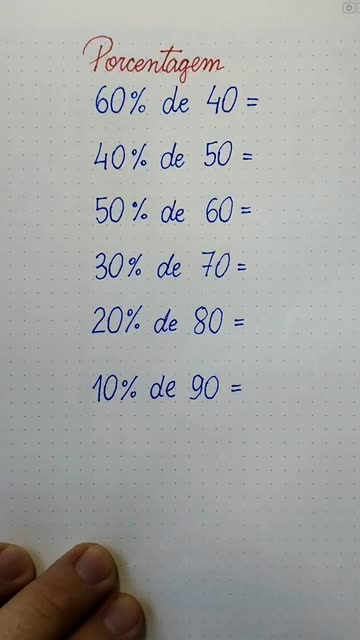 Porcentagem
60% de 40 =
40% de 50 =
50% de 60 =
30% de 70 =
20% de 80 =
10% de 90 =